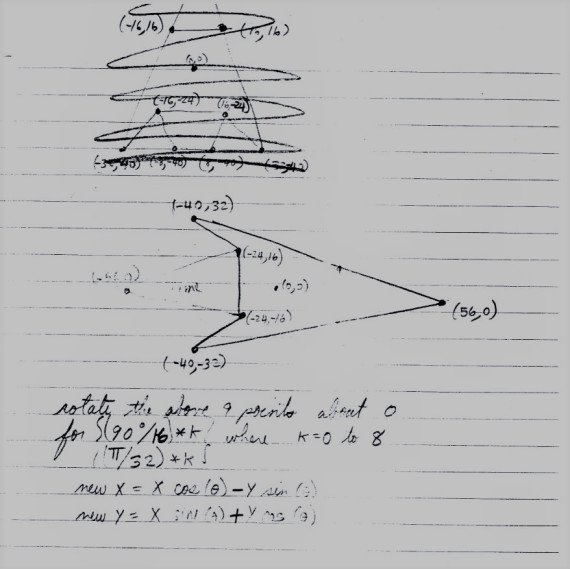 (-16,16) (16,16)
(0,0)
(-16,-24) (16,-24)
(-32,-40) (-8,-40) (8,-40) (32,-40)
(-40,32)
(-24,16)
(0,0)
(-24,-16) (56,0)
(-40,-32)
rotate the above 9 points about 0
for {(90°/16)*k} where k=0 to 8
(π/32)*k
new X = X cos(θ) - Y sin(θ)
new Y = X sin(θ) + Y cos(θ)